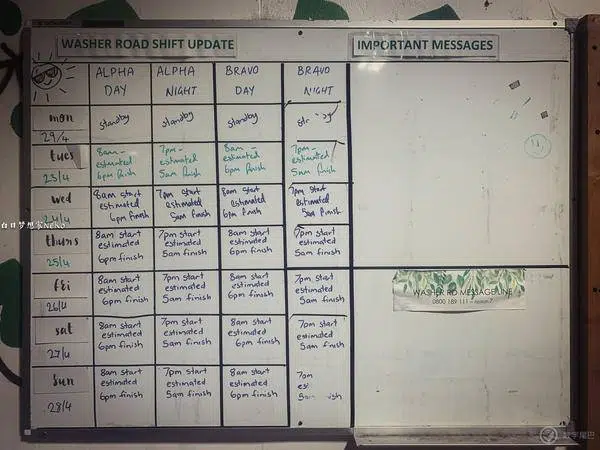 WASHER ROAD SHIFT UPDATE
IMPORTANT MESSAGES
ALPHA DAY
ALPHA NIGHT
BRAVO DAY
BRAVO NIGHT
mon
29/4
standby
standby
standby
tues
23/4
8am -
estimated
6pm finish
7pm -
estimated
5am finish
8am -
estimated
6pm finish
7pm -
estimated
5am finish
wed
24/4
8am start
estimated
6pm finish
7pm start
estimated
5am finish
8am start
estimated
6pm finish
7pm start
estimated
5am finish
thurs
25/4
8am start
estimated
6pm finish
7pm start
estimated
5am finish
8am start
estimated
6pm finish
7pm start
estimated
5am finish
fri
26/4
8am start
estimated
6pm finish
7pm start
estimated
5am finish
8am start
estimated
6pm finish
7pm start
estimated
5am finish
sat
27/4
8am start
estimated
6pm finish
7pm start
estimated
5am finish
8am start
estimated
6pm finish
7pm start
estimated
5am finish
sun
28/4
8am start
estimated
6pm finish
7pm start
estimated
5am finish
8am start
estimated
6pm finish
WASHER RD MESSAGE LINE
0800 189 111 – option 7
白日梦想家NeKo
数字尾巴